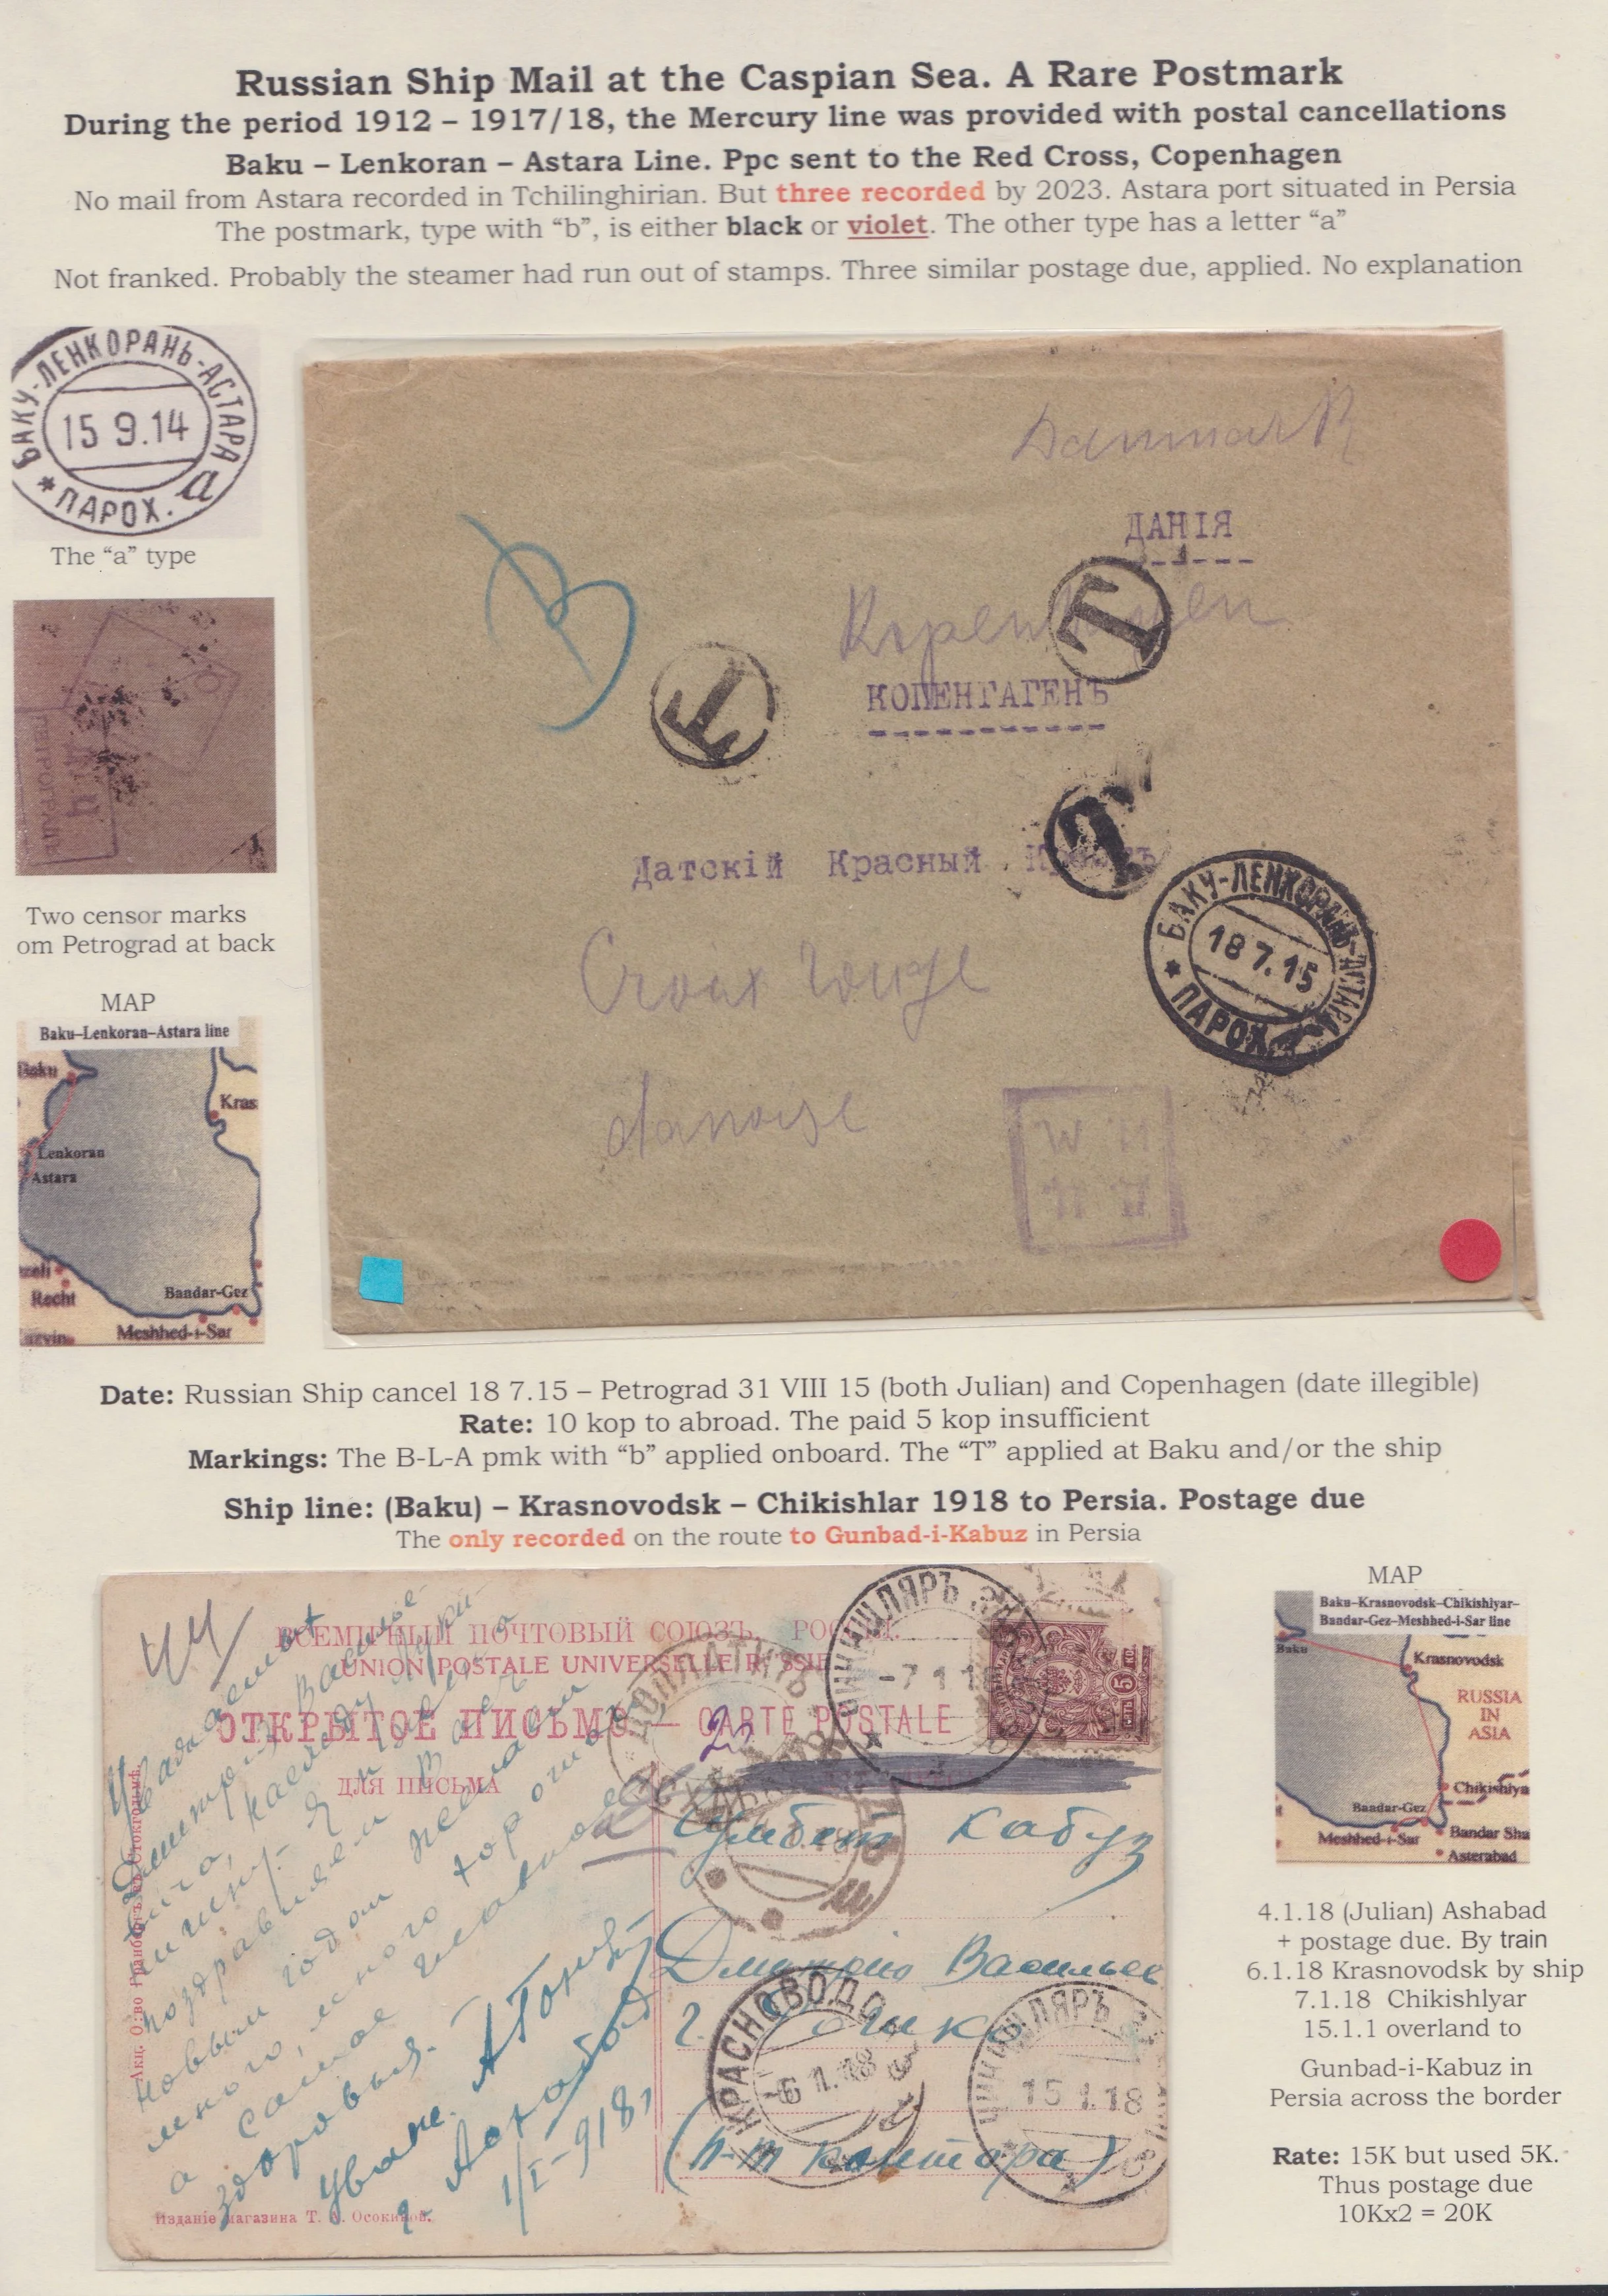 Russian Ship Mail at the Caspian Sea. A Rare Postmark
During the period 1912 – 1917/18, the Mercury line was provided with postal cancellations
Baku – Lenkoran – Astara Line. Ppc sent to the Red Cross, Copenhagen
No mail from Astara recorded in Tchilinghirian. But three recorded by 2023. Astara port situated in Persia
The postmark, type with “b”, is either black or violet. The other type has a letter “a”
Not franked. Probably the steamer had run out of stamps. Three similar postage due, applied. No explanation
БАКУ-ЛЕНКОРАНЬ-АСТАРА
15 9.14
* ПАРОХ. а
The “a” type
ПЕТРОГРАДЪ
Two censor marks
om Petrograd at back
MAP
Baku–Lenkoran–Astara line
Baku
Kras
Lenkoran
Astara
zeli
Recht
Bandar-Gez
Meshhed-i-Sar
Danmark
ДАНІЯ
T
Kopenhagen
КОПЕНГАГЕНЪ
T
Датскій Красный
T
БАКУ-ЛЕНКОРАНЬ-АСТАРА
18 7.15
* ПАРОХ.
Croix rouge
danoise
Date: Russian Ship cancel 18 7.15 – Petrograd 31 VIII 15 (both Julian) and Copenhagen (date illegible)
Rate: 10 kop to abroad. The paid 5 kop insufficient
Markings: The B-L-A pmk with “b” applied onboard. The “T” applied at Baku and/or the ship
Ship line: (Baku) – Krasnovodsk – Chikishlar 1918 to Persia. Postage due
The only recorded on the route to Gunbad-i-Kabuz in Persia
ВСЕМІРНЫЙ ПОЧТОВЫЙ СОЮЗЪ. РОССІЯ.
UNION POSTALE UNIVERSELLE RUSSIE
ОТКРЫТОЕ ПИСЬМО — CARTE POSTALE
ДЛЯ ПИСЬМА
-7 1 18
5
20
ДОПЛАТИТЬ
Кабуз
Дмитрію Васильев
КРАСНОВОДС
-6 1.18
15 1.18
(п-т контора)
новым годом
много, много хорошаго
а самое главное
здоровья.
1/I-918
Изданіе магазина Т. А. Осокиной.
MAP
Baku–Krasnovodsk–Chikishiyar–
Bandar-Gez–Meshhed-i-Sar line
Baku
Krasnovodsk
RUSSIA
IN
ASIA
Chikishiya
Bandar-Gez
Meshhed-i-Sar
Bandar Sha
Asterabad
4.1.18 (Julian) Ashabad
+ postage due. By train
6.1.18 Krasnovodsk by ship
7.1.18 Chikishlyar
15.1.1 overland to
Gunbad-i-Kabuz in
Persia across the border
Rate: 15K but used 5K.
Thus postage due
10Kx2 = 20K